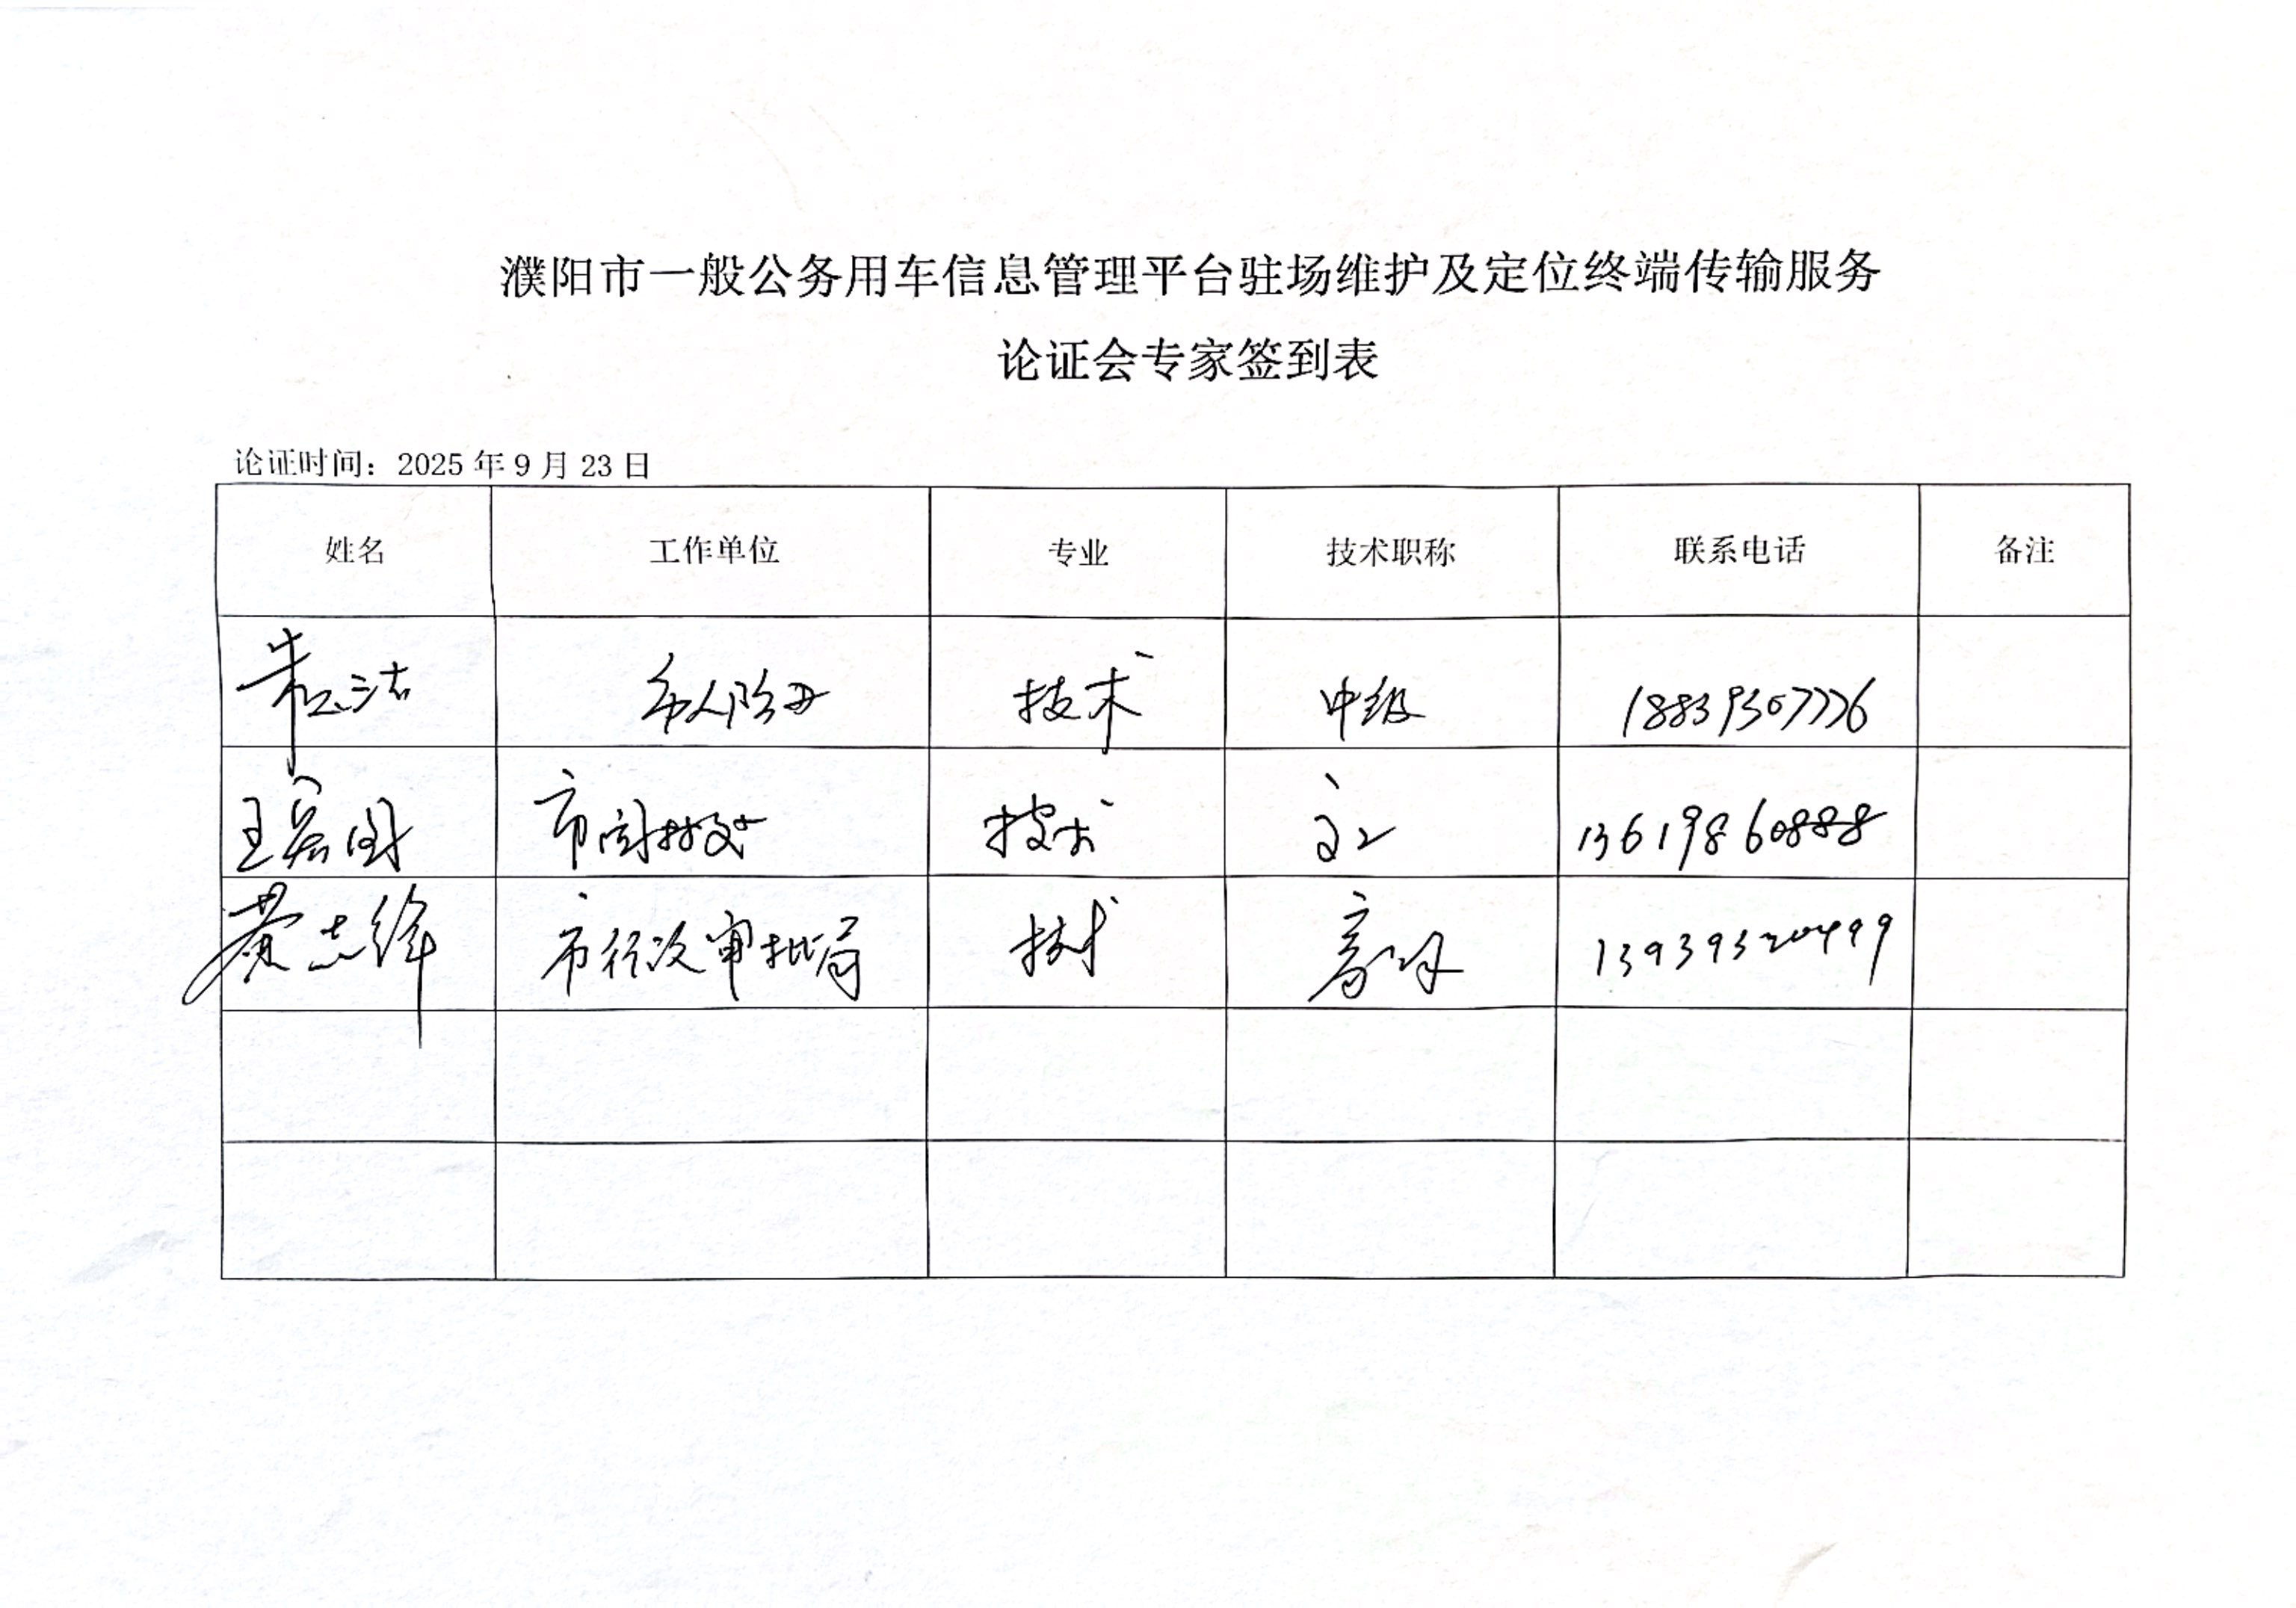 濮阳市一般公务用车信息管理平台驻场维护及定位终端传输服务
论证会专家签到表
论证时间：2025 年 9 月 23 日
姓名 工作单位 专业 技术职称 联系电话 备注
技术 中级 18839307776
王 市 技术 13619860888
黄志 市行政审批局 技术 高 13939320499